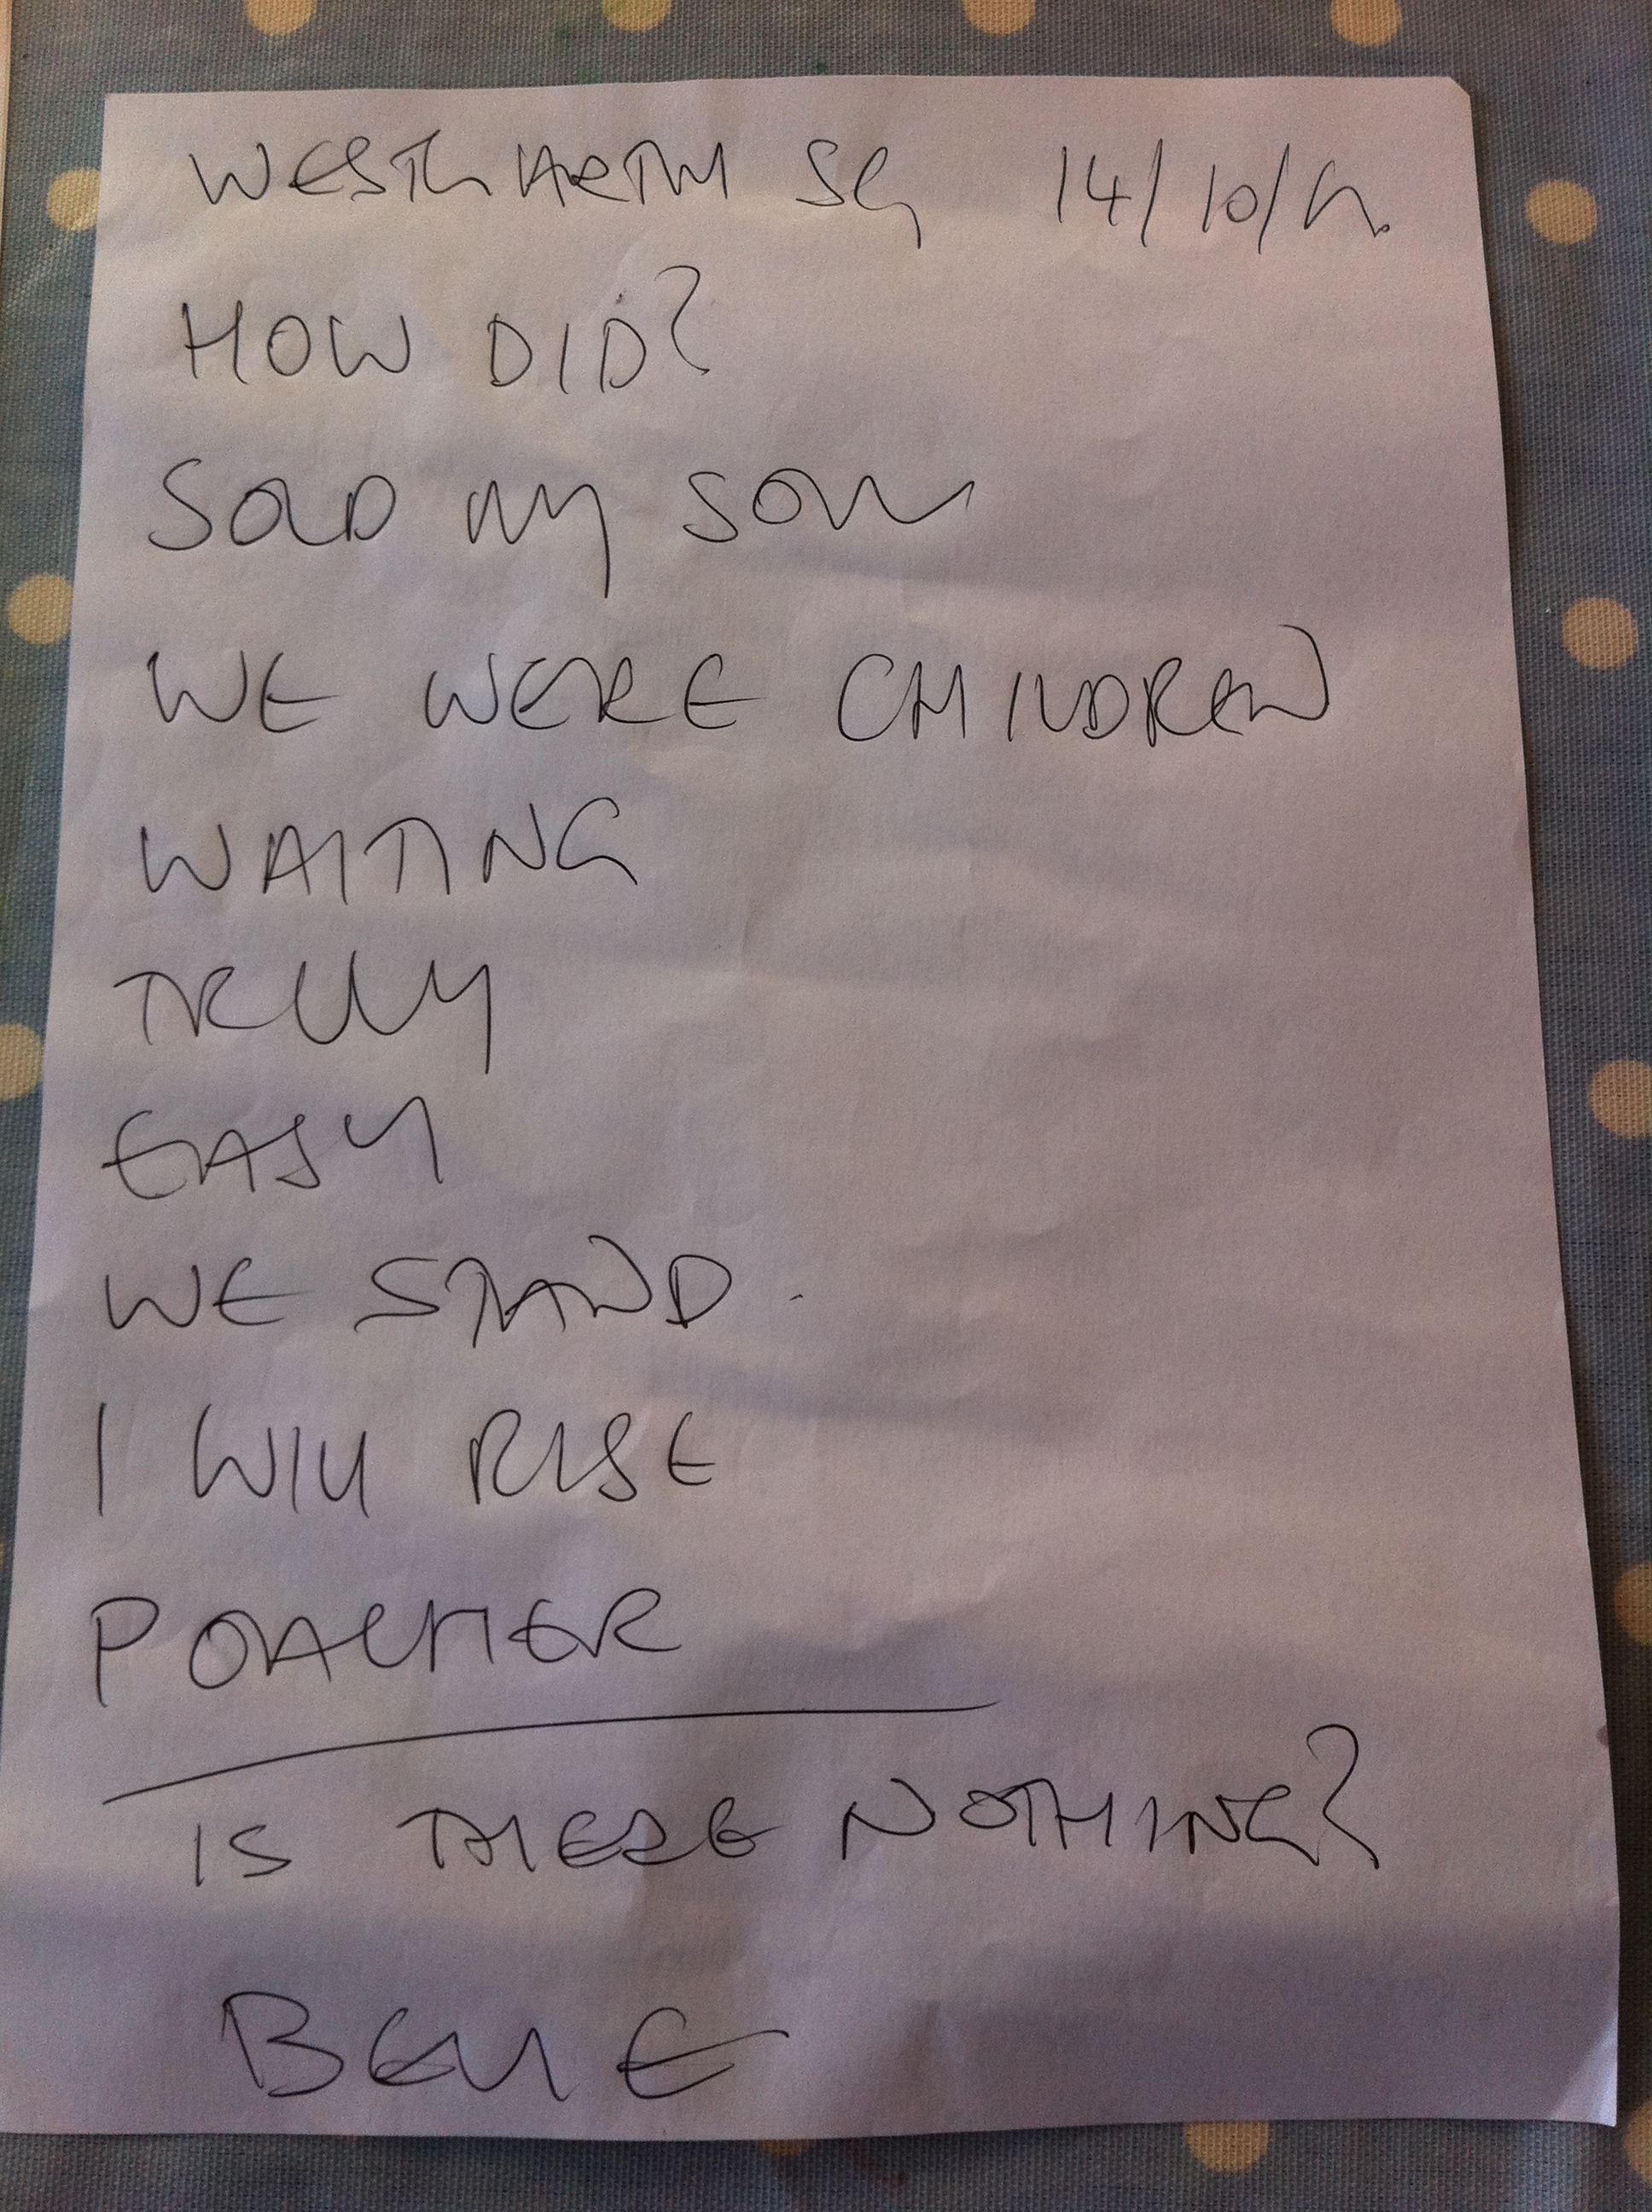 WESTGARTH SG 14/10/
HOW DID?
SOLD MY SOUL
WE WERE CHILDREN
WAITING
TRULY
EASY
WE STAND.
I WILL RISE
POACHER
IS THERE NOTHING?
BELLE